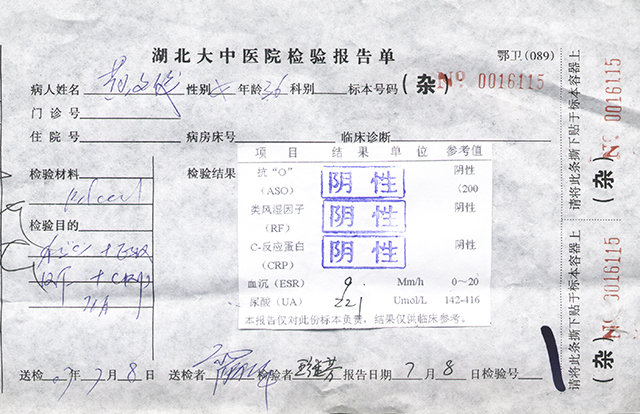 湖北大中医院检验报告单
鄂卫(089)
病人姓名 性别 女 年龄 36 科别 标本号码 (杂) Nº 0016115
门诊号
住院号 病房床号 临床诊断
检验材料
检验目的
+ CRP
UA
检验结果
项目 结果 单位 参考值
抗“O” 阴性 阴性
(ASO) (200
类风湿因子 阴性 阴性
(RF)
C-反应蛋白 阴性 阴性
(CRP)
血沉(ESR) 9. Mm/h 0~20
尿酸(UA) 221 Umol/L 142-416
本报告仅对此份标本负责，结果仅供临床参考。
送检 07年7月8日 送检者 检验者 报告日期 7月8日 检验号
请将此条撕下贴于标本容器上
(杂) Nº 0016115
请将此条撕下贴于标本容器上
(杂) Nº 0016115